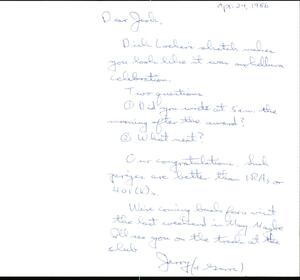 Apr. 24, 1986
Dear Jack,
Dick Locher's sketch makes
you look like it was a helluva
celebration.
Two questions
① Did you write at 5 a.m. the
morning after the award?
② What next?
Our congratulations. Such
prizes are better than IRAs or
401(k)s.
We're coming back from
the last weekend in May. Maybe
I'll see you on the track at the
club
Jerry